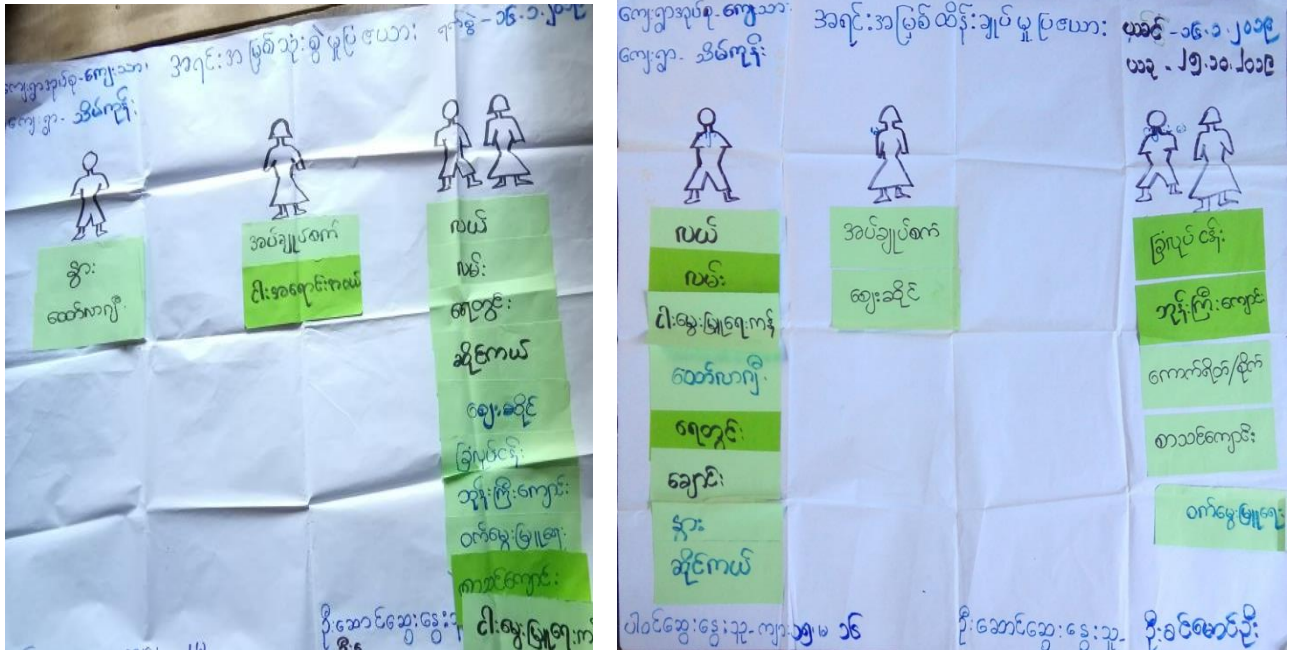 အရင်းအမြစ်သုံးစွဲမှုပြဇယား ရက်စွဲ - ၁၆.၁.၂၀၁၉
ကျေးရွာအုပ်စု - ကျေးသား
ကျေးရွာ - သိမ်ကုန်း
နွား
ထော်လာဂျီ
အပ်ချုပ်စက်
ငါးအရောင်းအဝယ်
လယ်
လမ်း
ရေတွင်း
ဆိုင်ကယ်
ဈေးဆိုင်
ခြံလုပ်ငန်း
ဘုန်းကြီးကျောင်း
ဝက်မွေးမြူရေး
စာသင်ကျောင်း
ငါးမွေးမြူရေးက
ဦးဆောင်ဆွေးနွေးသူ
ကျေးရွာအုပ်စု - ကျေးသား
ကျေးရွာ - သိမ်ကုန်း
အရင်းအမြစ်ထိန်းချုပ်မှုပြဇယား
ယခင် - ၁၆.၁.၂၀၁၉
ယခု - ၂၅.၁၀.၂၀၁၉
လယ်
လမ်း
ငါးမွေးမြူရေးကန်
ထော်လာဂျီ
ရေတွင်း
ချောင်း
နွား
ဆိုင်ကယ်
အပ်ချုပ်စက်
ဈေးဆိုင်
ခြံလုပ်ငန်း
ဘုန်းကြီးကျောင်း
ကောက်ရိတ်/စိုက်
စာသင်ကျောင်း
ဝက်မွေးမြူရေး
ပါဝင်ဆွေးနွေးသူ - ကျား ၁၅ မ ၁၆
ဦးဆောင်ဆွေးနွေးသူ - ဦးခင်မောင်ဦး